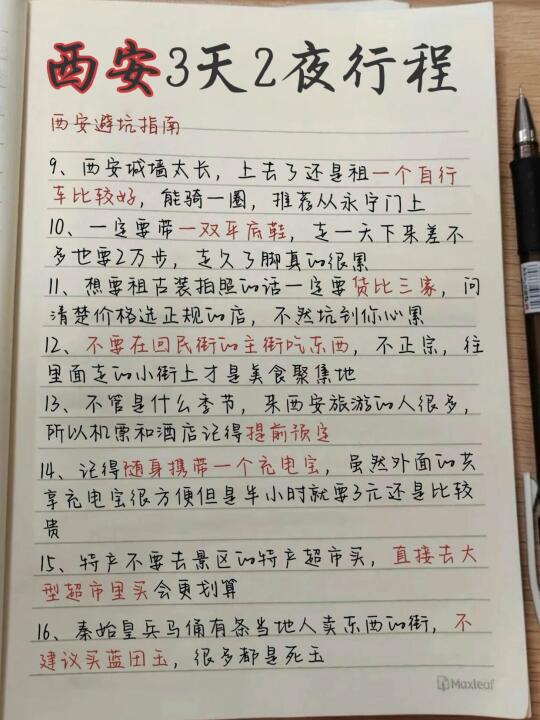 西安3天2夜行程
西安避坑指南
9、西安城墙太长，上去了还是租一个自行
车比较好，能骑一圈，推荐从永宁门上
10、一定要带一双平底鞋，走一天下来差不
多也要2万步，走久了脚真的很累
11、想要租古装拍照的话一定要货比三家，问
清楚价格选正规的店，不然坑到你心累
12、不要在回民街的主街吃东西，不正宗，往
里面走的小街上才是美食聚集地
13、不管是什么季节，来西安旅游的人很多，
所以机票和酒店记得提前预定
14、记得随身携带一个充电宝，虽然外面的共
享充电宝很方便但是半小时就要3元还是比较
贵
15、特产不要去景区的特产超市买，直接去大
型超市里买会更划算
16、秦始皇兵马俑有条当地人卖东西的街，不
建议买蓝田玉，很多都是死玉
Maxleaf